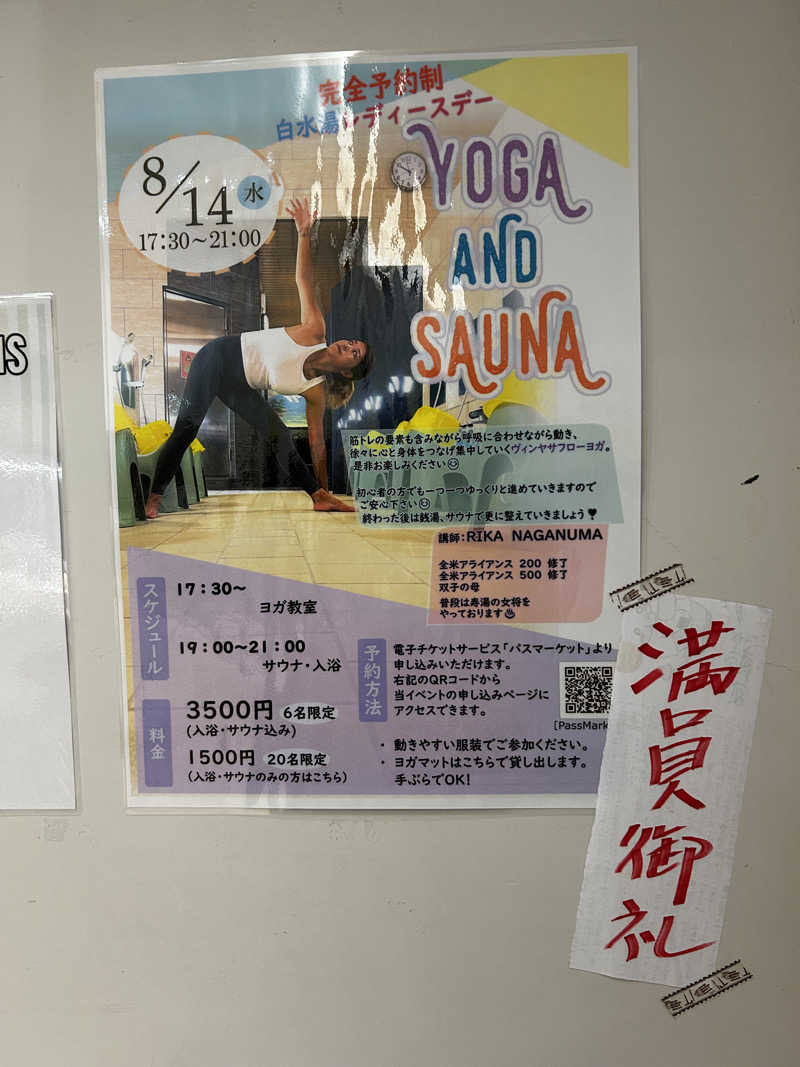 完全予約制
白水湯レディースデー
8/14 水
17:30〜21:00
YOGA
AND
SAUNA
NS
筋トレの要素も含みながら呼吸に合わせながら動き、
徐々に心と身体をつなげ集中していくヴィンヤサフローヨガ。
是非お楽しみください☺
初心者の方でも一つ一つゆっくりと進めていきますので
ご安心下さい☺
終わった後は銭湯、サウナで更に整えていきましょう❣
講師:RIKA NAGANUMA
全米アライアンス 200 修了
全米アライアンス 500 修了
双子の母
普段は寿湯の女将を
やっております♨
スケジュール
17:30〜
ヨガ教室
19:00〜21:00
サウナ・入浴
料金
3500円 6名限定
(入浴・サウナ込み)
1500円 20名限定
(入浴・サウナのみの方はこちら)
予約方法
電子チケットサービス「パスマーケット」より
申し込みいただけます。
右記のQRコードから
当イベントの申し込みページに
アクセスできます。
[PassMark
・ 動きやすい服装でご参加ください。
・ ヨガマットはこちらで貸し出します。
手ぶらでOK!
満員御礼